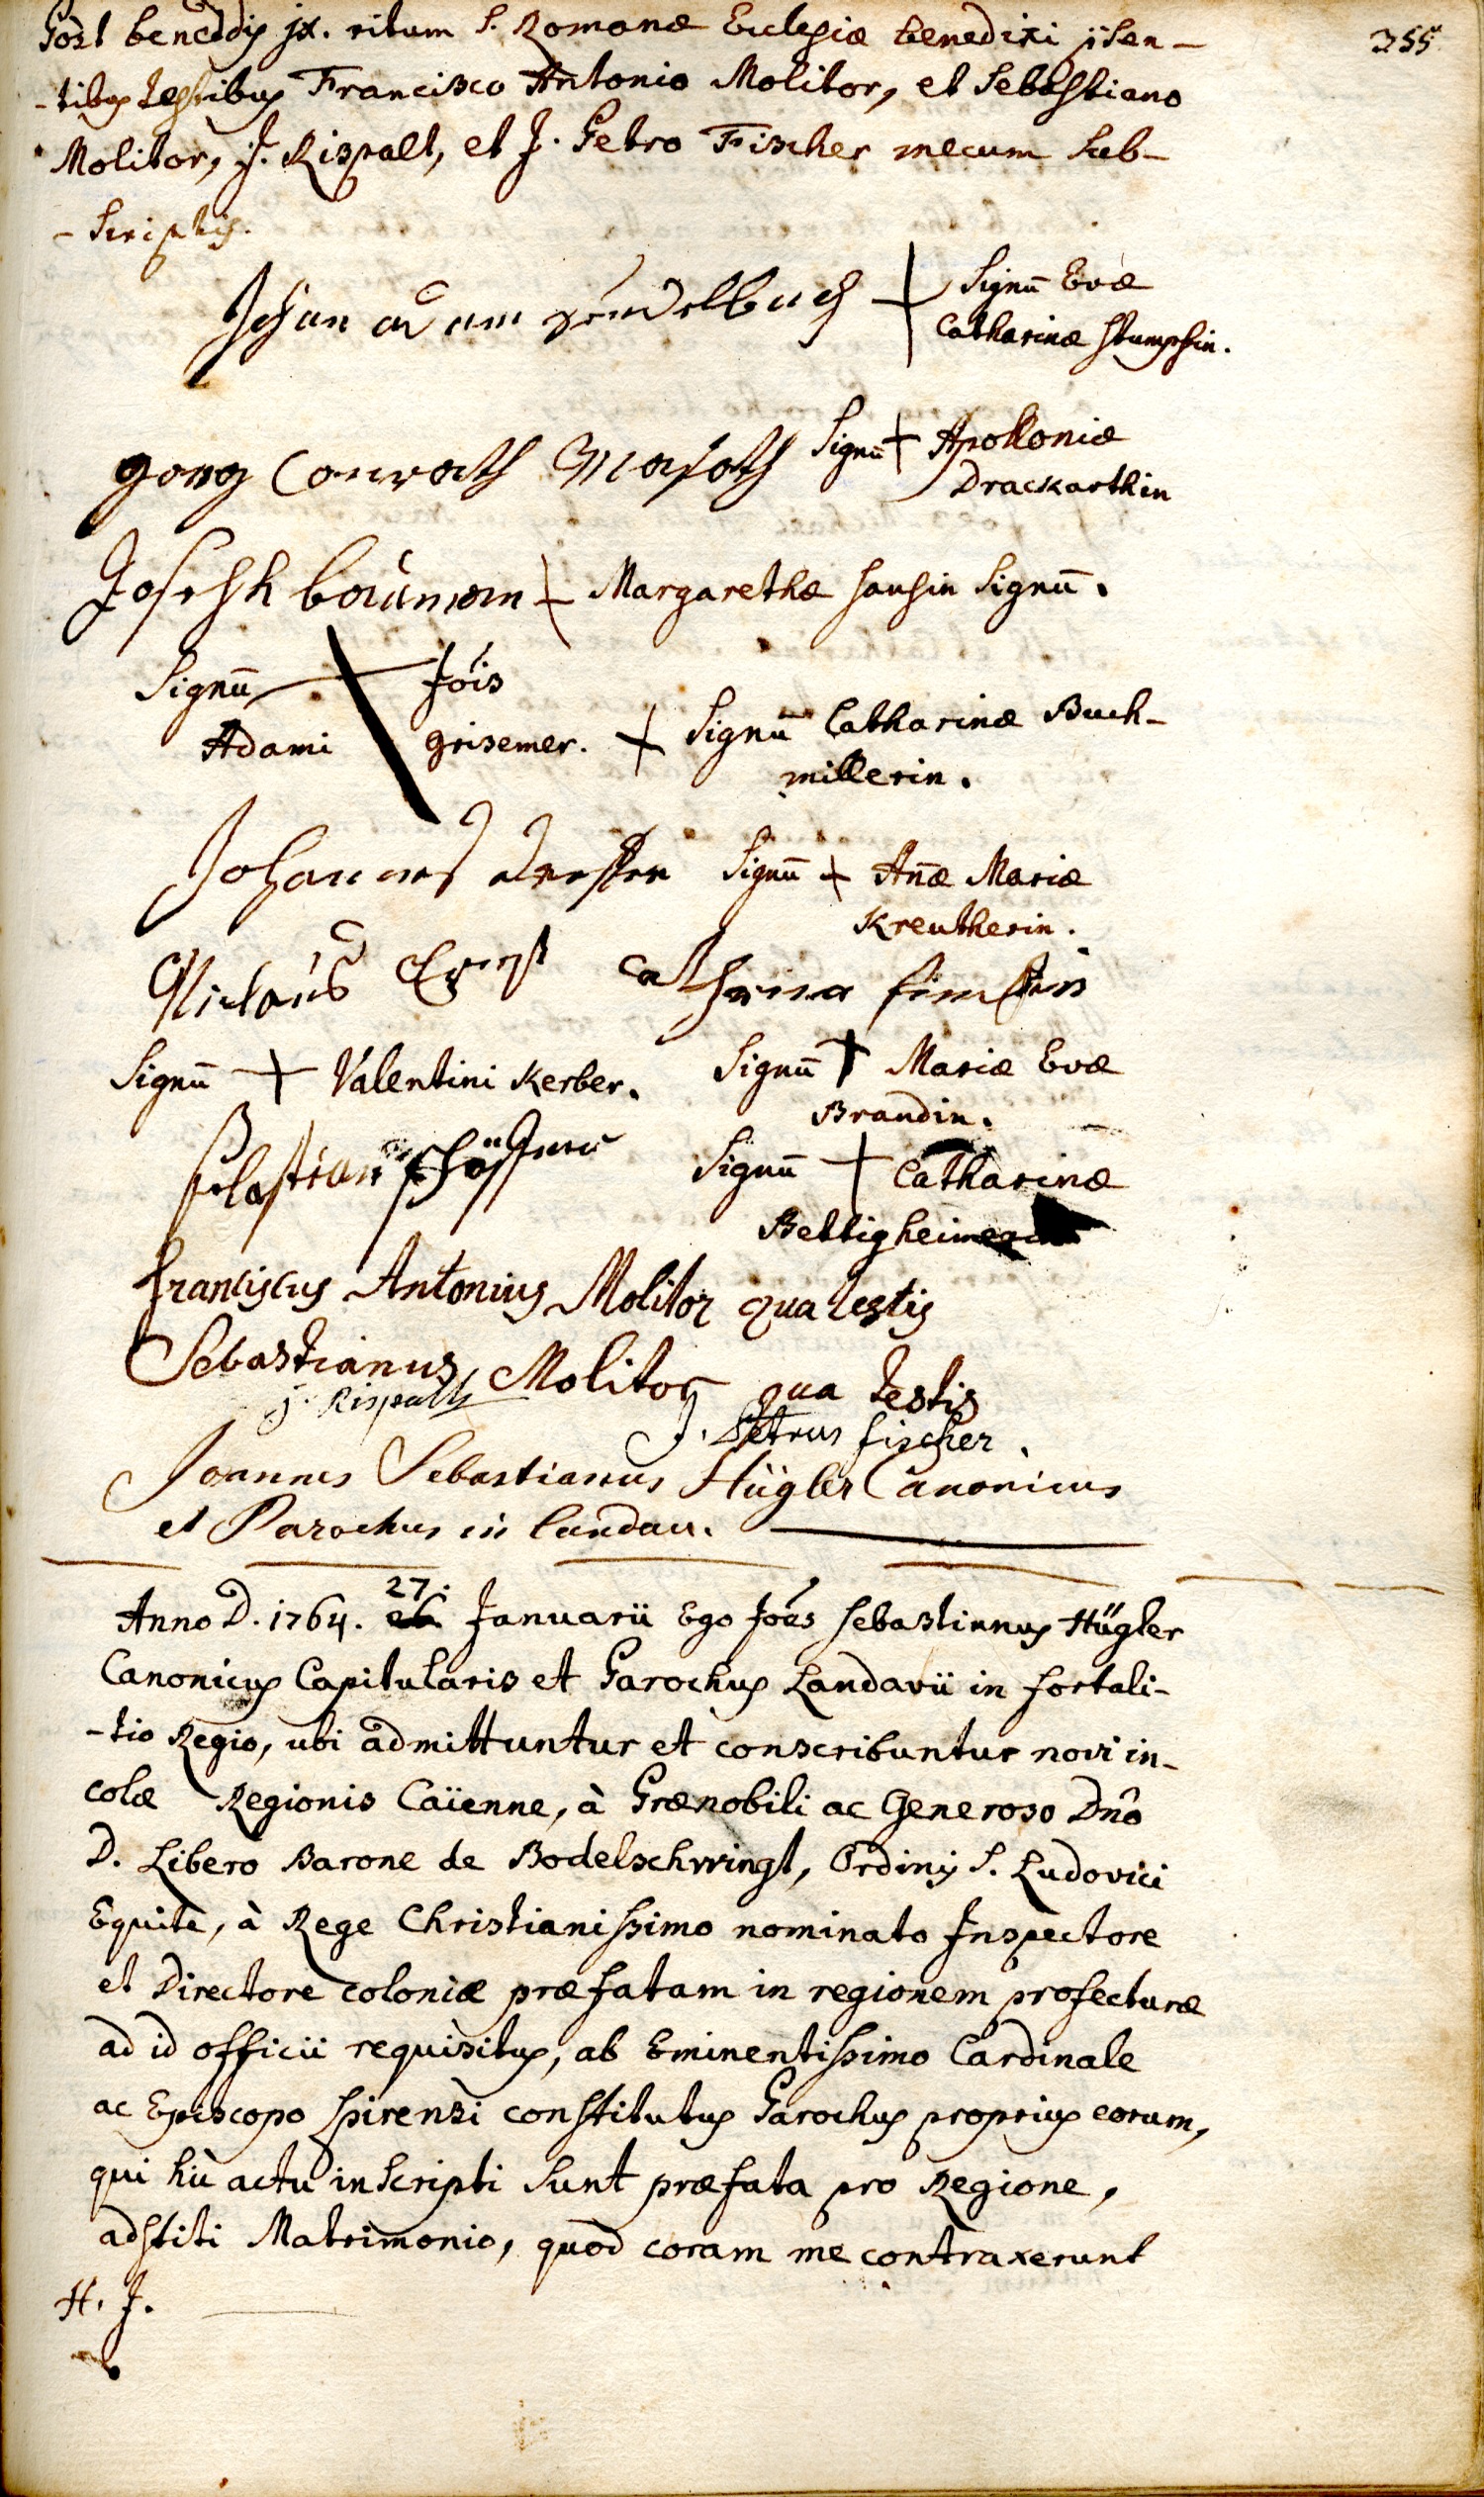 355
Post beneddis jx. ritum S. Romanæ Ecclesiæ benedixi p̄sen-
-tibus testibus Francisco Antonio Molitor, et Sebastiano
Molitor, J. Rispalt, et J. Petro Fischer mecum Sub-
-scriptis.
Johan adam + Signū Evæ
Catharinæ Stumpfin.
georg Conrath Signū + Apolloniæ
Drackarthin
Joseph baúman + Margarethæ hausin Signū.
Signū + Jois
Adami grisemer. + Signū Catharinæ Buch-
millerin.
Johannes Signū + An̄æ Mariæ
Kreutherin.
Niclaus Ernst Catharina
Signū + Valentini Kerber. Signū + Mariæ Evæ
Brandin.
Sebastian Signū + Catharinæ
Bettigheimerin
Franciscus Antonius Molitor qua testis
Sebastianus Molitor qua testis
j. Rispalt
J. Petrus fischer.
Joannes Sebastianus Hügler Canonicus
et Parochus in landau.
27.
Anno D. 1764. 26. Januarii Ego Joes Sebastianus Hügler
Canonicus Capitularis et Parochus Landavii in fortali-
-tio Regio, ubi admittuntur et conscribuntur novi in-
colæ Regionis Caïenne, à Prænobili ac Generoso Dn̄o
D. Libero Barone de Bodelschwingt, Ordinis S. Ludovici
Equite, à Rege Christianissimo nominato Inspectore
et Directore coloniæ præfatam in regionem profecturæ
ad id officii requisitus, ab Eminentissimo Cardinale
ac Episcopo Spirensi constitutus Parochus proprius eorum,
qui hic actu inscripti sunt præfata pro Regione,
adstiti Matrimonio, quod coram me contraxerunt
H. J.